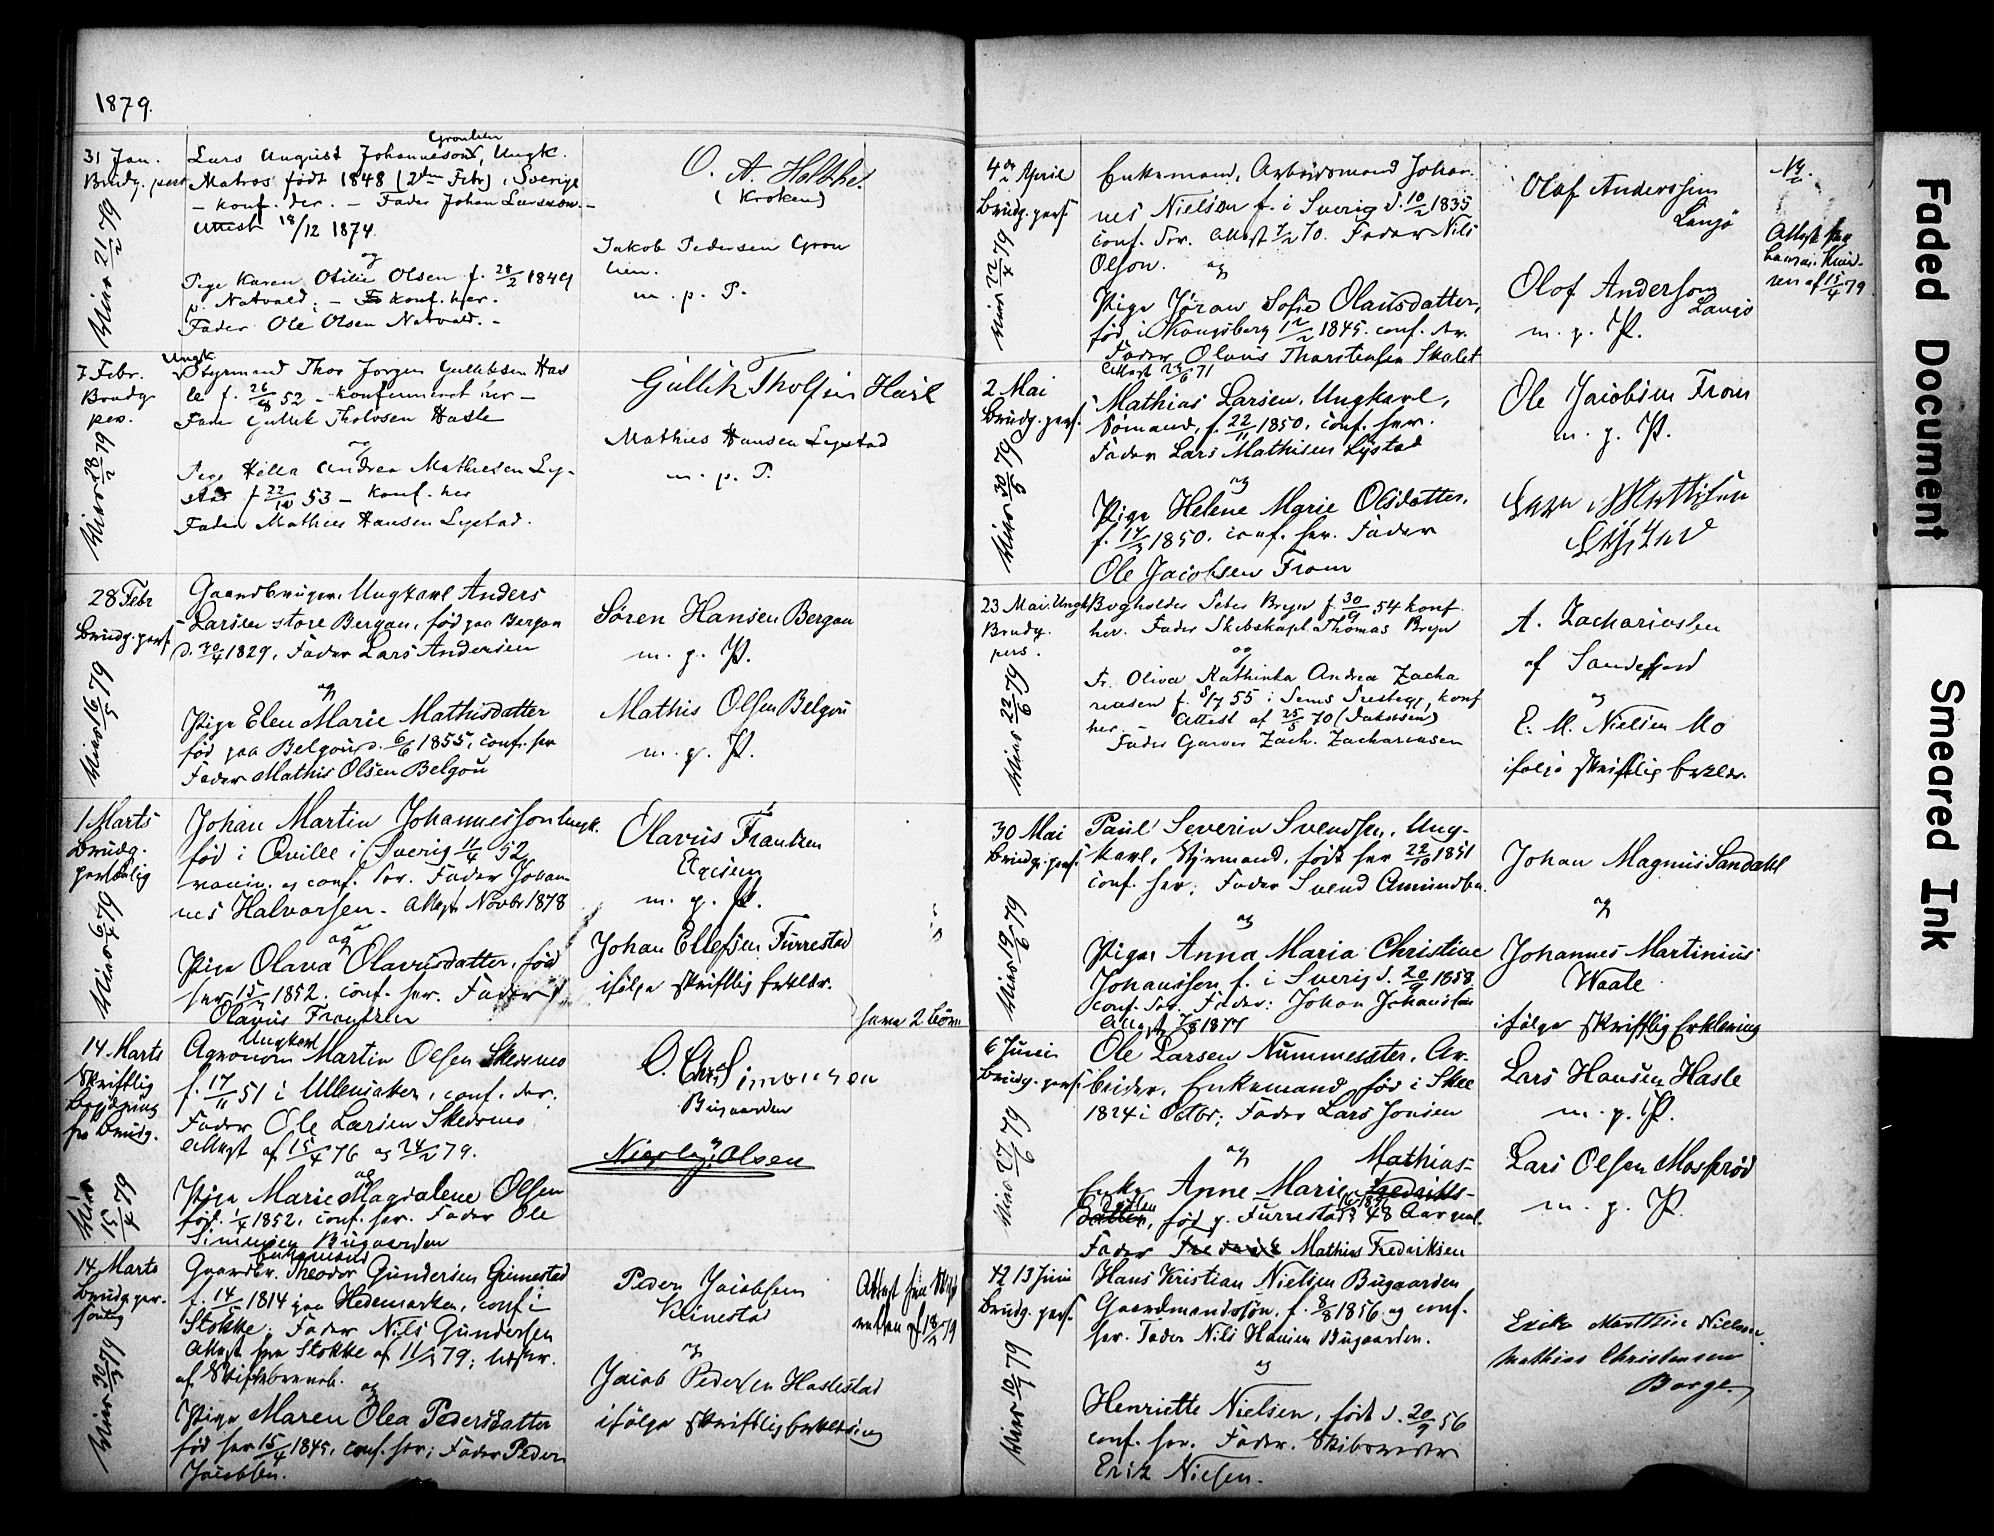 1879.
31 Jan.
Brudg. pers
Viet 21/2 79
Gronlien
Lars August Johanneson, Ungk.
Matros født 1848 (2den Febr) i Sverige
- konf. der. - Fader Johan Larsson. -
Attest 18/12 1874.
og
Pige Karen Otilie Olsen f. 28/2 1849
p. Natvald. - konf. her.
Fader Ole Olsen Natvald. -
O. A. Holthe.
(Kroken)
Jakob Pedersen Gron
lien.
m. p. P.
7 Febr.
Brudg.
pers.
Viet 28/2 79
Ungk.
Styrmand Thor Jørgen Gulliksen Has
le f. 26/8 52 - konfirmeret her -
Fader Gullik Tholvsen Hasle
og
Pige Hella Andrea Mathiesen Ly-
stad f. 22/10 53 - konf. her
Fader Mathies Hansen Lystad.
Gullik Tholfsen Hasle
Mathies Hansen Lystad
m. p. P.
28 Febr
Brudg. pers.
Viet 16/5 79
Gaardbruger, Ungkarl Anders
Larsen store Bergan, fød paa Bergan
d. 30/4 1829, Fader Lars Andersen
og
Pige Elen Marie Mathisdatter
fød paa Belgou d. 6/6 1855, conf. her
Fader Mathis Olsen Belgou
Søren Hansen Bergan
m. p. P.
Mathis Olsen Belgou
m. p. P.
1 Marts
Brudg.
personlig
Viet 6/4 79
Johan Martin Johannesson Ungk.
fød i Qville i Sverig 11/4 52
vaccin. og conf. der. Fader Johan-
nes Halvorsen. Attest Novbr 1878
og
Pige Olava Olavusdatter, fød
her 15/2 1852. conf. her. Fader
Olavus Frantzen
Olavus Frantzen
m. p. P.
Johan Ellefsen Furrestad
ifølge skriftlig Erklær.
have 2 Børn
14 Marts
Skriftlig
Begjæring
fra Brudg.
Viet
15/4 79
Ungkarl
Agronom Martin Olsen Skedsmo
f. 17/11 51 i Ullensaker, conf. der.
Fader Ole Larsen Skedsmo
Attest af 15/4 76 og 24/2 79.
og
Pige Marie Magdalene Olsen
fød. 1/4 1852, conf. her. Fader Ole
Simonsen Bugaarden
O. Chr. Simonsen
Bugaarden
Nicolay Olsen
14 Marts
Brudg. per-
sonlig
Viet 30/3 79
Enkemand
Gaardbr. Theodor Gundersen Gimestad
f. 14/5 1814 paa Hedemarken, conf i
Stokke. Fader Nils Gundersen
Attest fra Stokke af 11/3 79;
af Skifte
og
Pige Maren Olea Pedersdatter
fød her 15/4 1845, conf. her; Fader Peder
Jacobsen.
Peder Jacobsen
Klinestad
og
Jacob Pedersen Haslestad
ifølge skriftlig Erklæring
Attest fra Skif
teretten af 18/3 79
4de April
Brudg. pers.
Viet 22/4 79
Enkemand, Arbeidsmand Johan-
nes Nielsen f. i Sverig d. 10/2 1835
conf. der. Attest 7/2 70. Fader Nils
Olson.
og
Pige Jøran Sofie Olausdatter,
fød i Kongsberg 12/2 1845. conf. der.
Fader Olaus Thorstensen Skalet
Attest 24/6 71
Olaf Anderssen
Langø
Olof Anderson
Langø
m. p. P.
Attest fra
af 15/4 79
2 Mai
Brudg. pers.
Viet 30/5 79
Mathias Larsen, Ungkarl,
Sømand, f. 22/11 1850, conf. her.
Fader Lars Mathisen Lystad
og
Pige Helene Marie Olsdatter,
f. 17/3 1850, conf. her. Fader
Ole Jacobsen From
Ole Jacobsen From
m. p. P.
Lars Matthisen
Lystad
23 Mai.
Brudg.
pers.
Viet 22/6 79
Ungk. Bogholder Peter Bryn f. 30/9 54 konf.
her. Fader Skibskapt. Thomas Bryn
og
Fr. Oliva Kathinka Andrea Zacha
riasen f. 5/7 55 i Sems Prestegj, konf
her. Attest af 25/5 70 (Jakobsen)
Fader Garver Zach. Zachariasen
A. Zachariassen
af Sandefjord
og
E. M. Nielsen Mo
ifølge skriftlig Erklær.
30 Mai
Brudg. pers.
Viet 19/6 79
Paul Severin Svendsen, Ung-
karl, Styrmand, født her 22/10 1851
conf. her; Fader Svend Amundsen
og
Pigen Anna Maria Christine
Johansson f. i Sverig d. 20/9 1858
conf. der. Fader: Johan Johansson
Attest 7/8 1877
Johan Magnus Sandahl
og
Johannes Martinius
Waale
ifølge skriftlig Erklæring
6 Juni
Brudg. pers.
Viet 27/6 79
Ole Larsen Nummesæter, Ar-
beider, Enkemand fød i Skee
1824 i Octbr; Fader Lars Jonsen
og Mathias-
Enke Anne Marie Fredriks-
datter
datter, fød p. Furrestad 48 Aar gml.
Fader Fredrik Mathias Fredriksen
Lars Hansen Hasle
m. p. P.
Lars Olsen Moskrød
m. p. P.
12 13 Juni
Brudg. pers.
Viet 10/7 79
Hans Kristian Nielsen Bugaarden
Gaardmandssøn, f. 8/8 1856 og conf.
her. Fader Nils Hansen Bugaarden.
og
Henriette Nielsen, født d. 20/9 56
conf. her. Fader. Skibsreder
Erik Nielsen.
Erik Matthias Nielsen.
Mathias Christensen
Borge.
Faded Document
Smeared Ink